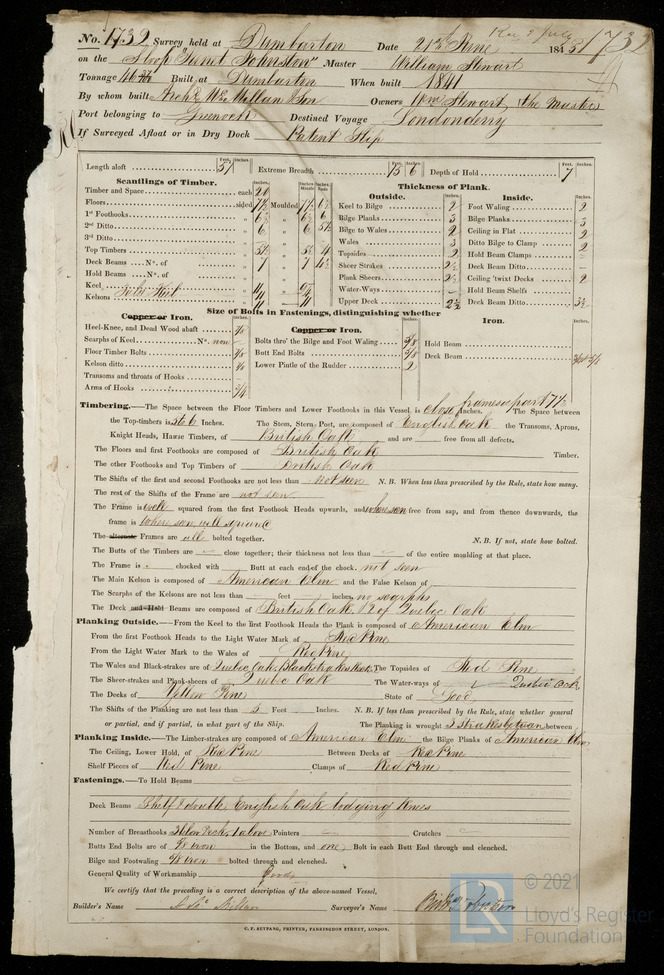 No. 1732 Survey held at Dumbarton Date 21st June 1843 1732
on the Sloop "Janet Johnston" Master William Stewart
Tonnage Built at Dumbarton When built 1841
By whom built Archd McMillan & Son Owners Wm Stewart (the Master)
Port belonging to Greenock Destined Voyage Londonderry
If Surveyed Afloat or in Dry Dock Patent Slip
Length aloft 51 Extreme Breadth 15 6 Depth of Hold 7
Feet. Inches. Feet. Inches. Feet. Inches.
Scantlings of Timber.
Timber and Space each 20
Floors sided 7½ Moulded 7½ 6½
1st Foothooks " 6½ " 6½ 6
2nd Ditto " 6 " 6 5½
3rd Ditto " "
Top Timbers " 5½ " 5½ 4
Deck Beams No. of " 7 " 7 4½
Hold Beams No. of " "
Keel " 11 "
Kelsons " 11 " 11
Thickness of Plank.
Outside.
Keel to Bilge 2
Bilge Planks 3
Bilge to Wales 2
Wales 3
Topsides 2
Sheer Strakes 2½
Plank Sheers 2½
Water-Ways
Upper Deck 2½
Inside.
Foot Waling 2
Bilge Planks 3
Ceiling in Flat 2
Ditto Bilge to Clamp 2
Hold Beam Clamps
Deck Beam Ditto
Ceiling 'twixt Decks 2
Hold Beam Shelfs
Deck Beam Ditto 3½
Size of Bolts in Fastenings, distinguishing whether
Copper or Iron.
Heel-Knee, and Dead Wood abaft 7/8
Scarphs of Keel No. none
Floor Timber Bolts 7/8
Kelson ditto 7/8
Transoms and throats of Hooks
Arms of Hooks 3/4
Copper or Iron.
Bolts thro' the Bilge and Foot Waling 5/8
Butt End Bolts 5/8
Lower Pintle of the Rudder 2
Iron.
Hold Beam
Deck Beam
Timbering.—The Space between the Floor Timbers and Lower Foothooks in this Vessel is close Inches. The Space between
the Top-timbers is 5 to 6 Inches. The Stem, Stern Post, are composed of English Oak the Transoms, Aprons,
Knight Heads, Hawse Timbers, of British Oak and are free from all defects.
The Floors and first Foothooks are composed of British Oak Timber.
The other Foothooks and Top Timbers of British Oak
The Shifts of the first and second Foothooks are not less than not seen N.B. When less than prescribed by the Rule, state how many.
The rest of the Shifts of the Frame are not seen
The Frame is well squared from the first Foothook Heads upwards, and where seen free from sap, and from thence downwards, the
frame is where seen well squared
The alternate Frames are all bolted together. N.B. If not, state how bolted.
The Butts of the Timbers are close together; their thickness not less than of the entire moulding at that place.
The Frame is chocked with Butt at each end of the chock. not seen
The Main Kelson is composed of American Elm and the False Kelson of
The Scarphs of the Kelsons are not less than feet inches no scarphs
The Deck and Hold Beams are composed of British Oak, 12 of Quebec Oak
Planking Outside.—From the Keel to the first Foothook Heads the Plank is composed of American Elm
From the first Foothook Heads to the Light Water Mark of Red Pine
From the Light Water Mark to the Wales of Red Pine
The Wales and Black-strakes are of Quebec Oak, Black strakes Red Pine, The Topsides of Red Pine
The Sheer-strakes and Plank-sheers of Quebec Oak The Water-ways of Quebec Oak
The Decks of Yellow Pine State of Good
The Shifts of the Planking are not less than 5 Feet Inches. N.B. If less than prescribed by the Rule, state whether general
or partial, and if partial, in what part of the Ship. The Planking is wrought 3 Strakes between
Planking Inside.—The Limber-strakes are composed of American Elm the Bilge Planks of American Elm
The Ceiling, Lower Hold, of Red Pine Between Decks of Red Pine
Shelf Pieces of Red Pine Clamps of Red Pine
Fastenings.—To Hold Beams
Deck Beams Shelf & double English Oak lodging Knees
Number of Breasthooks 3 below Deck, 1 above Pointers Crutches
Butts End Bolts are of Iron in the Bottom, and one Bolt in each Butt End through and clenched.
Bilge and Footwaling Iron bolted through and clenched.
General Quality of Workmanship Good
We certify that the preceding is a correct description of the above-named Vessel,
Builder's Name A McMillan Surveyor's Name
C. F. SEYFANG, PRINTER, FARRINGDON STREET, LONDON.
© 2021
LR Lloyd's Register
Foundation